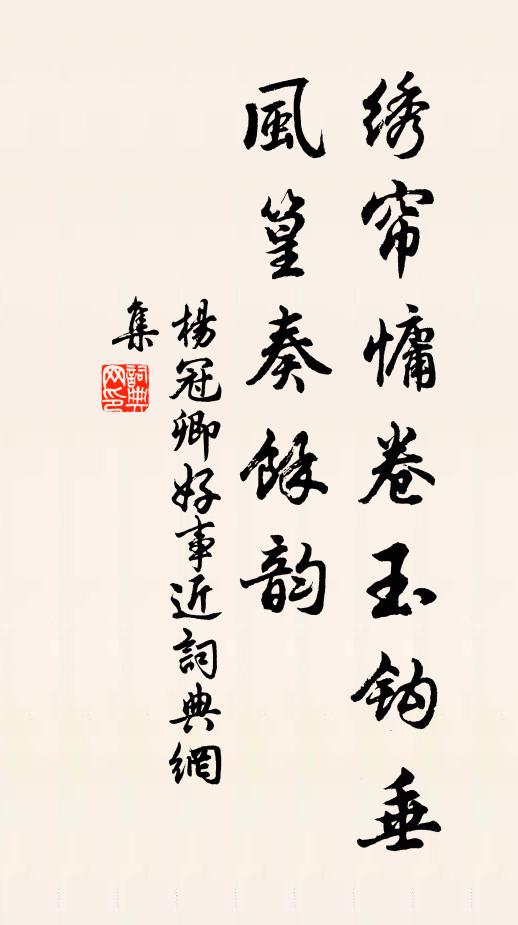 绣帘慵卷玉钩垂
風篁奏餘韵
楊冠卿好事近詞典網
集
詞典
网印